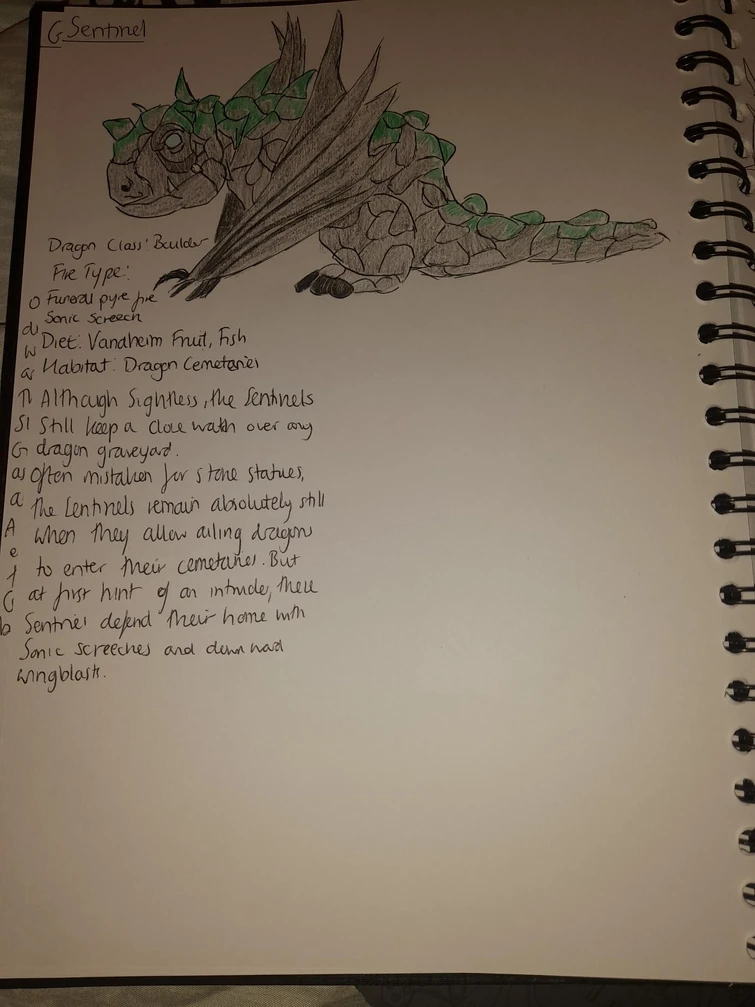 Sentinel
Dragon Class: Boulder
Fire Type:
Funeral pyre fire
Sonic Screech
Diet: Vandheim Fruit, Fish
Habitat: Dragon Cemetaries
Although Sightless, the Sentinels
Still keep a close watch over any
dragon graveyard.
often mistaken for stone statues,
the Sentinels remain absolutely still
when they allow ailing dragons
to enter their cemetaries. But
at first hint of an intruder, these
Sentinel defend their home with
Sonic screeches and downward
wingblasts.